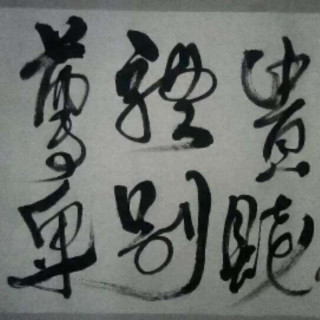 貴賤
禮別
尊卑